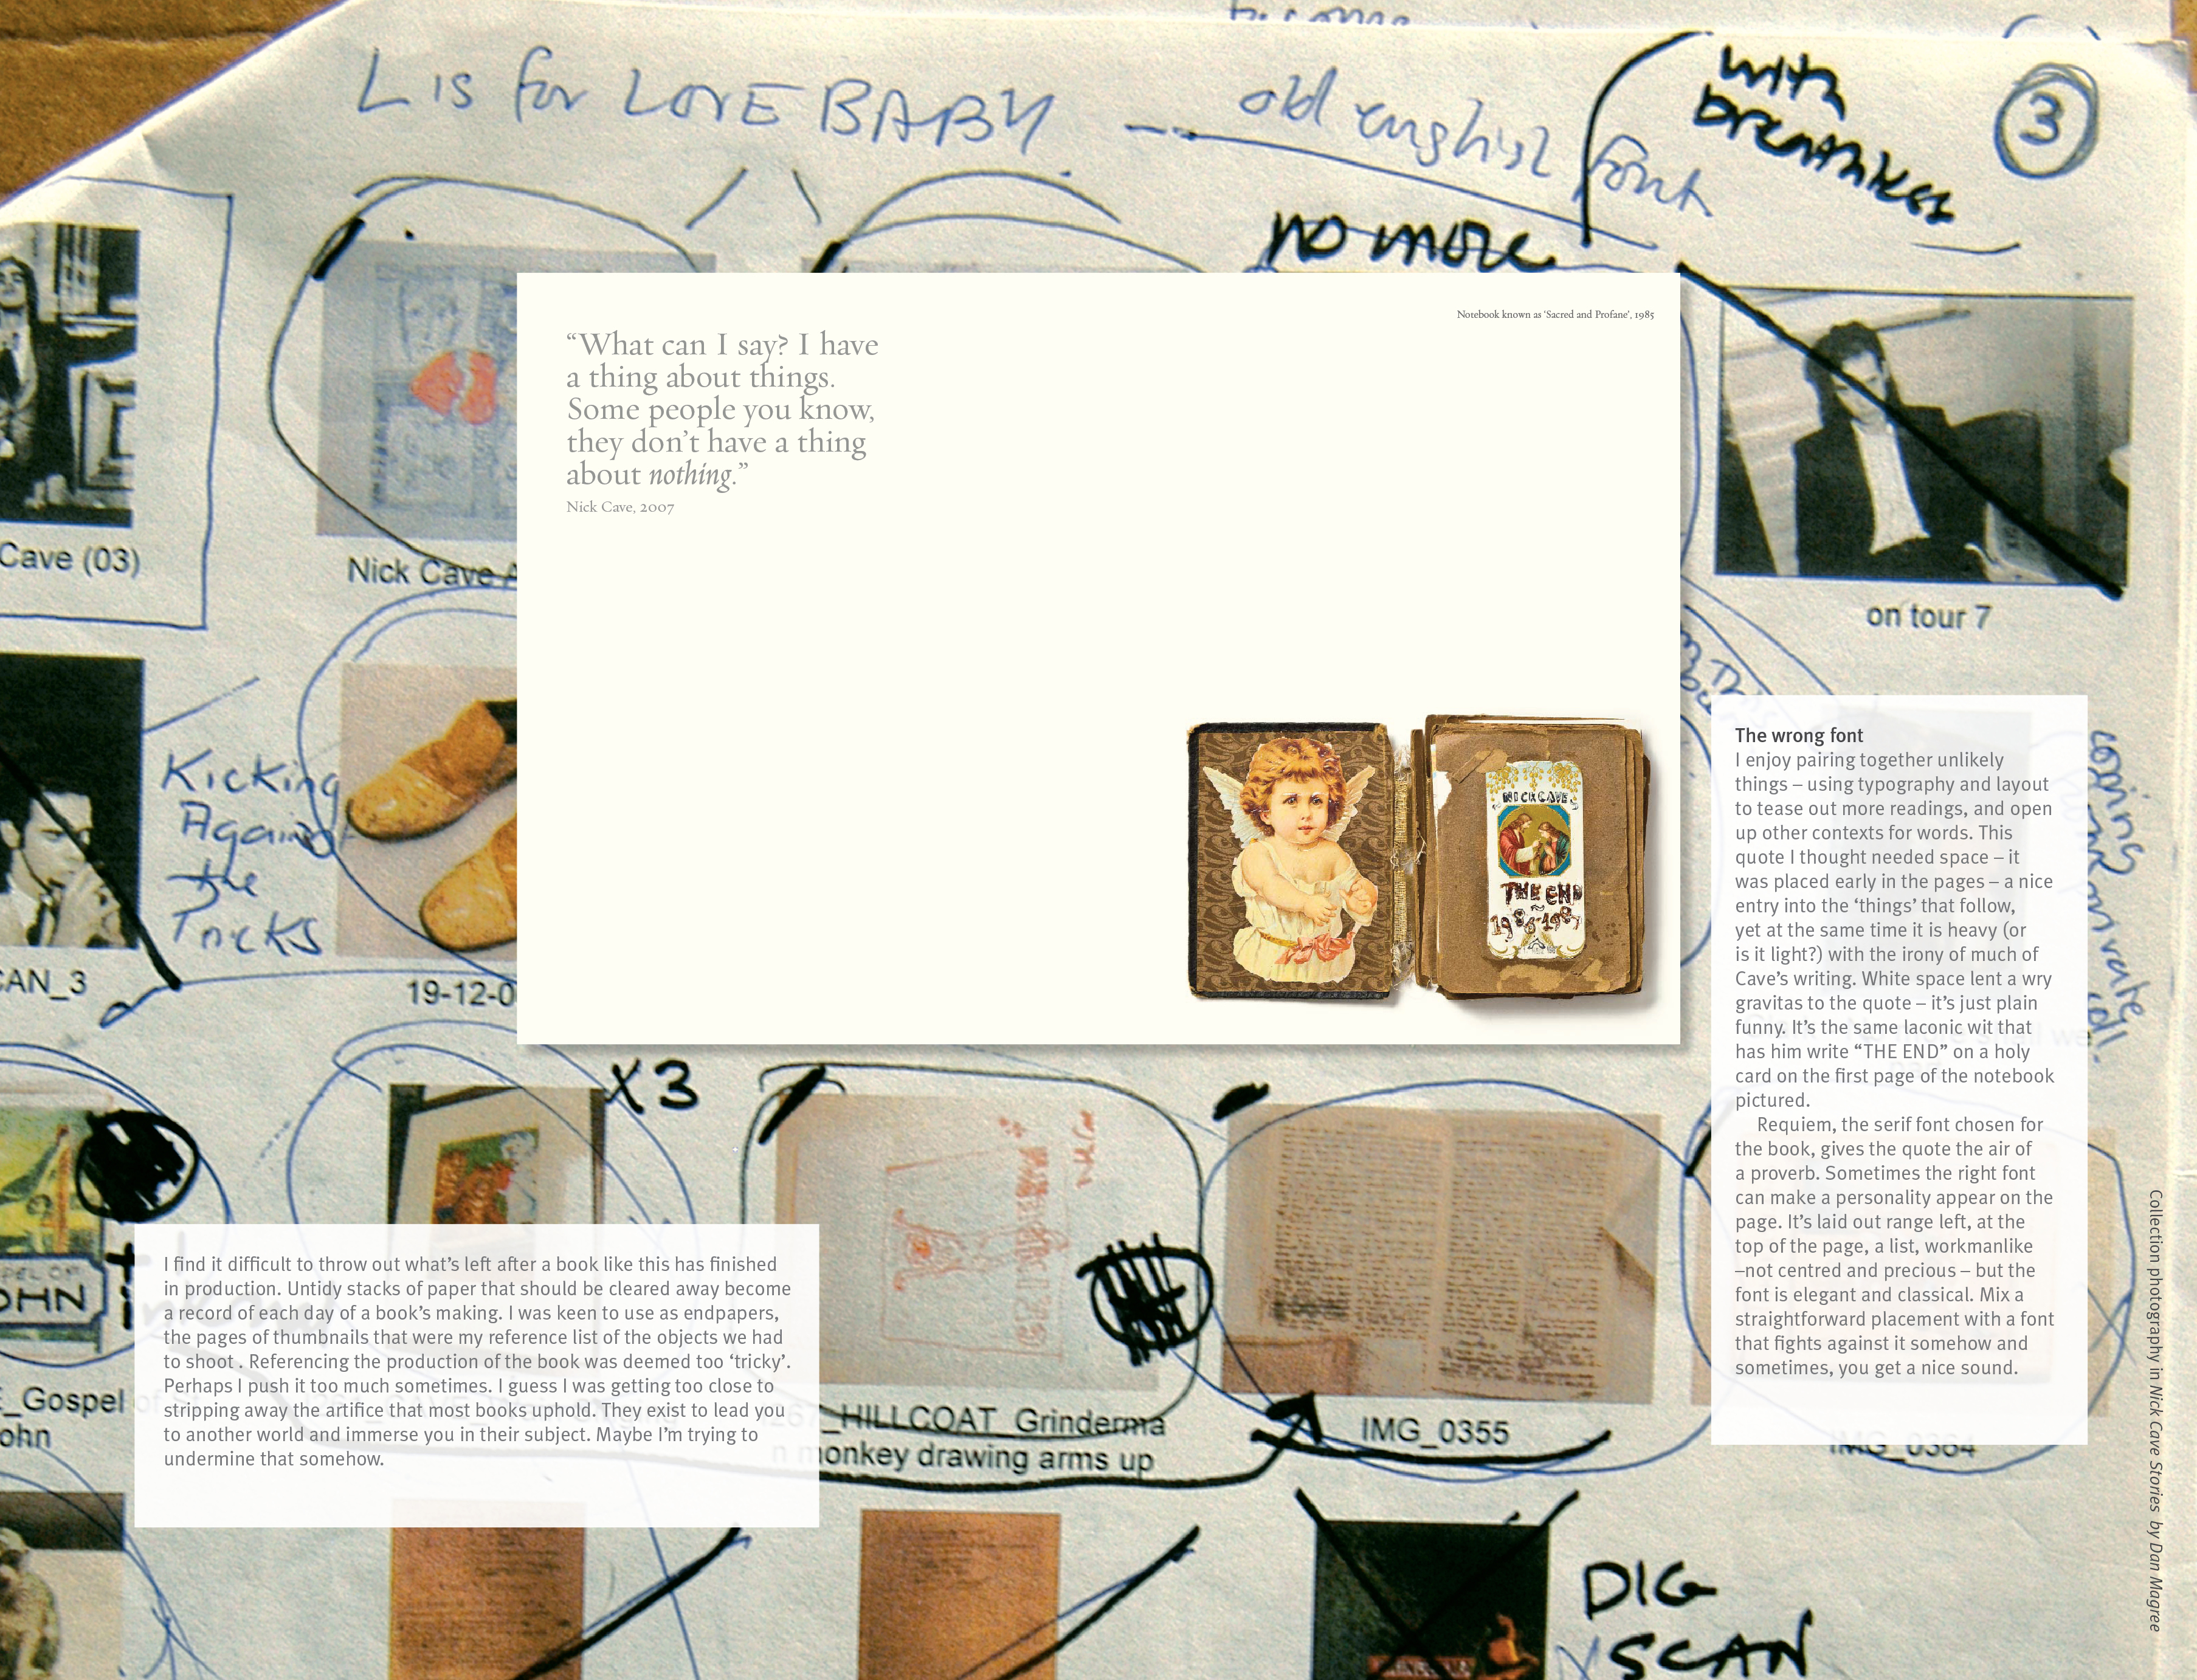 L IS for LOVE BABY
old english font
with
breathless
3
no more
Cave (03)
Nick Cave A
on tour 7
“What can I say? I have
a thing about things.
Some people you know,
they don’t have a thing
about nothing.”
Nick Cave, 2007
Notebook known as ‘Sacred and Profane’, 1985
NICK CAVE
THE END
Kicking
Against
the
Pricks
CAN_3
19-12-0
coming
private
The wrong font
I enjoy pairing together unlikely
things – using typography and layout
to tease out more readings, and open
up other contexts for words. This
quote I thought needed space – it
was placed early in the pages – a nice
entry into the ‘things’ that follow,
yet at the same time it is heavy (or
is it light?) with the irony of much of
Cave’s writing. White space lent a wry
gravitas to the quote – it’s just plain
funny. It’s the same laconic wit that
has him write “THE END” on a holy
card on the first page of the notebook
pictured.
Requiem, the serif font chosen for
the book, gives the quote the air of
a proverb. Sometimes the right font
can make a personality appear on the
page. It’s laid out range left, at the
top of the page, a list, workmanlike
–not centred and precious – but the
font is elegant and classical. Mix a
straightforward placement with a font
that fights against it somehow and
sometimes, you get a nice sound.
X3
OHN
_Gospel of
ohn
I find it difficult to throw out what’s left after a book like this has finished
in production. Untidy stacks of paper that should be cleared away become
a record of each day of a book’s making. I was keen to use as endpapers,
the pages of thumbnails that were my reference list of the objects we had
to shoot . Referencing the production of the book was deemed too ‘tricky’.
Perhaps I push it too much sometimes. I guess I was getting too close to
stripping away the artifice that most books uphold. They exist to lead you
to another world and immerse you in their subject. Maybe I’m trying to
undermine that somehow.
_HILLCOAT_Grinderma
n monkey drawing arms up
IMG_0355
IMG_0364
DIG
SCAN
Collection photography in Nick Cave Stories by Dan Magree